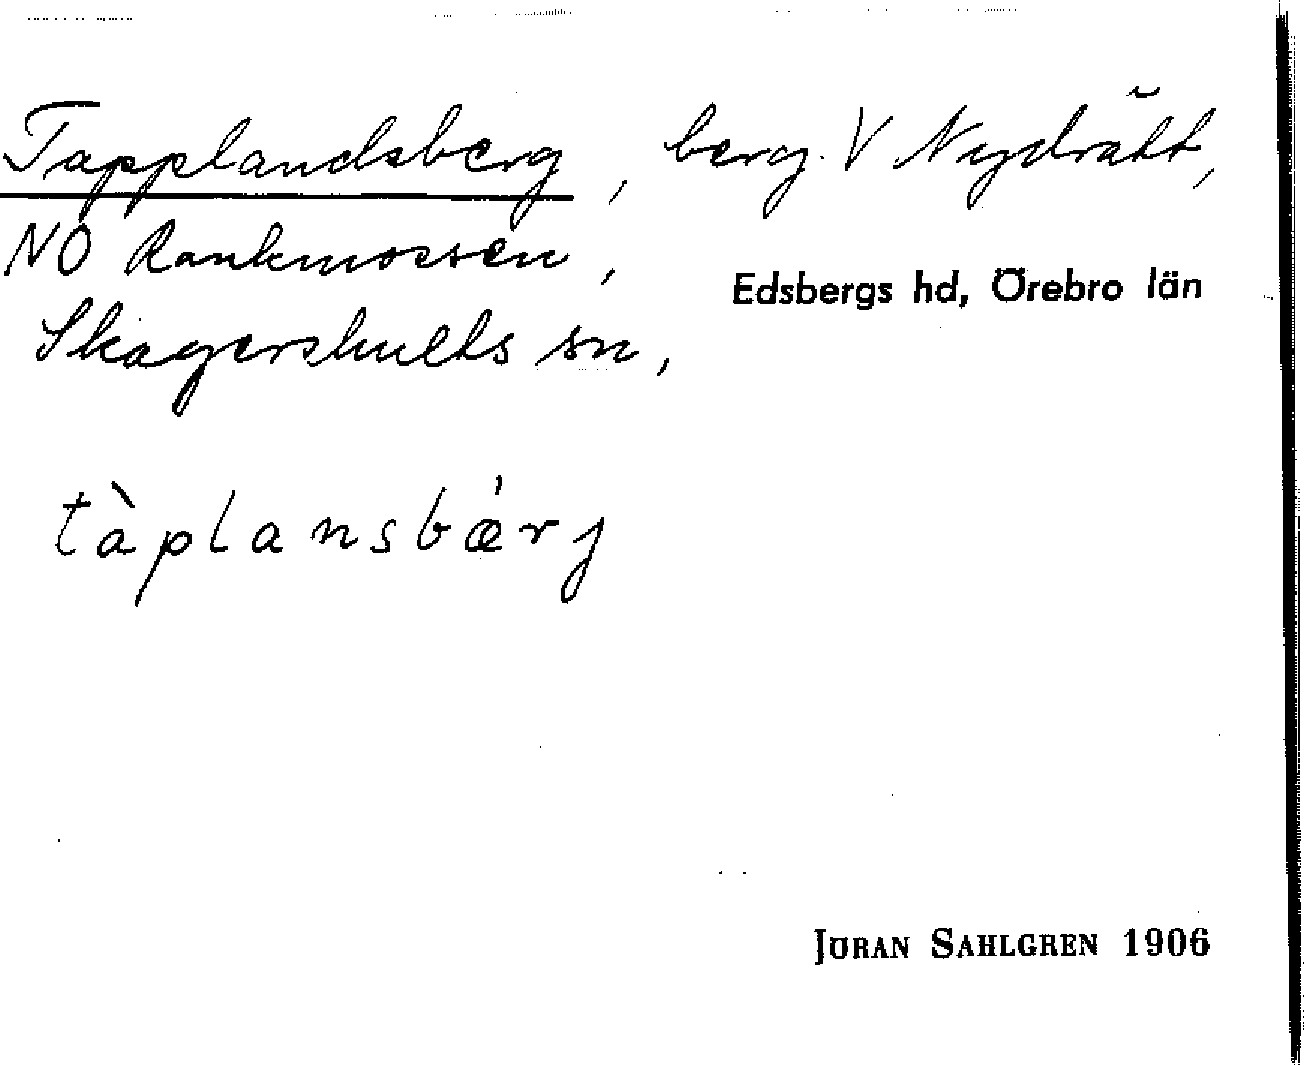 Tapplandsberg, berg. V Nydrätt,
NO Rankmossen,
Edsbergs hd, Örebro län
Skagershults sn,
tàplansbǽrj
JÖRAN SAHLGREN 1906